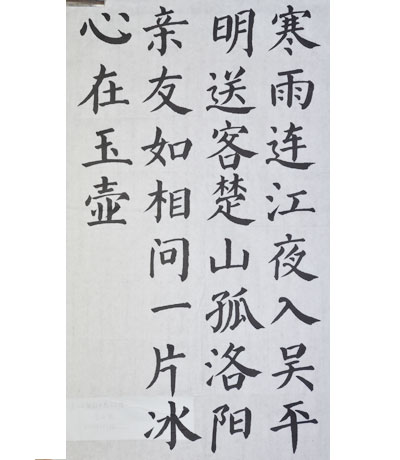 寒雨连江夜入吴平
明送客楚山孤洛阳
亲友如相问一片冰
心在玉壶